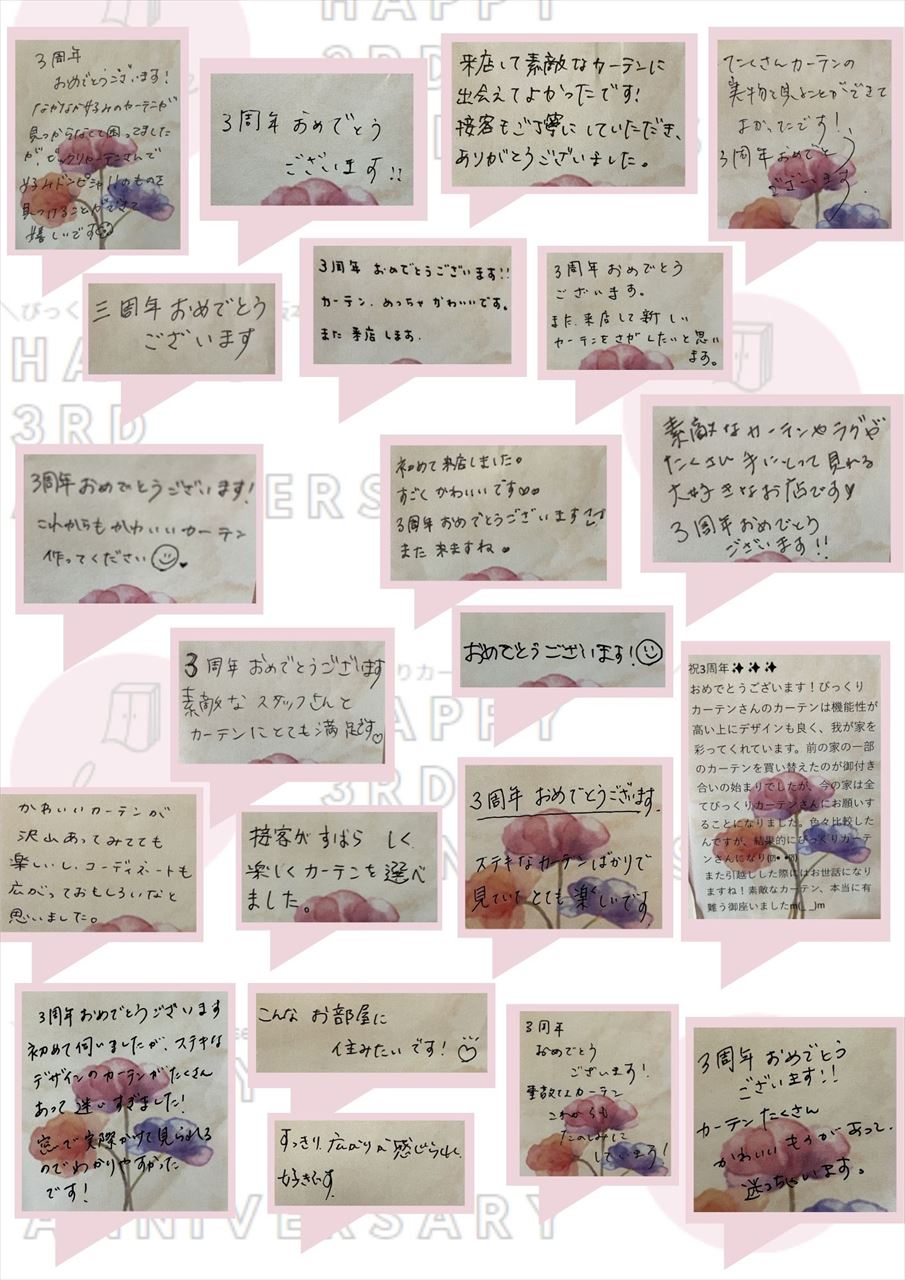 3周年
おめでとうございます!
なかなか好みのカーテンが
見つからなくて困ってました
が、ビックリカーテンさんで
好みドンピシャリのものを
見つけることができて
嬉しいです
3周年 おめでとう
ございます!!
来店して素敵なカーテンに
出会えてよかったです!
接客もご丁寧にしていただき、
ありがとうございました。
たくさんカーテンの
実物を見ることができて
よかったです!
3周年おめでとう
ございます
三周年おめでとう
ございます
3周年 おめでとうございます!!
カーテン、めっちゃかわいいです。
また来店します。
3周年おめでとう
ございます。
また、来店して新しい
カーテンをさがしたいと思い
ます。
3周年おめでとうございます!
これからもかわいいカーテン
作ってください
初めて来店しました。
すごくかわいいです♡♡
3周年おめでとうございます
また来ますね
素敵なカーテンやラグが
たくさん手にとって見れる
大好きなお店です♡
3周年おめでとう
ございます!!
3周年おめでとうございます
素敵なスタッフさんと
カーテンにとても満足です♡
おめでとうございます!
祝3周年✨✨✨
おめでとうございます!びっくり
カーテンさんのカーテンは機能性が
高い上にデザインも良く、我が家を
彩ってくれています。前の家の一部
のカーテンを買い替えたのが御付き
合いの始まりでしたが、今の家は全
てびっくりカーテンさんにお願いす
ることになりました。色々比較した
んですが、結果的にびっくりカーテ
ンさんになり
また引越しした際にはお世話になり
ますね!素敵なカーテン、本当に有
難う御座いましたm(_ _)m
かわいいカーテンが
沢山あってみてても
楽しいし、コーディネートも
広がっておもしろいなと
思いました。
接客がすばらしく、
楽しくカーテンを選べ
ました。
3周年 おめでとうございます。
ステキなカーテンばかりで
見ていてとても楽しいです
3周年おめでとうございます
初めて伺いましたが、ステキな
デザインのカーテンがたくさん
あって迷いすぎました!
窓で実際かけて見られる
のでわかりやすかった
です!
こんな お部屋に
住みたいです!
すっきり、広がりが感じられ、
好きです
3周年
おめでとう
ございます!
素敵なカーテン
これからも
たのしみに
しています!
3周年 おめでとう
ございます!!
カーテンたくさん
かわいいものがあって、
迷っちゃいます。
HAPPY
3RD
ANNIVERSARY